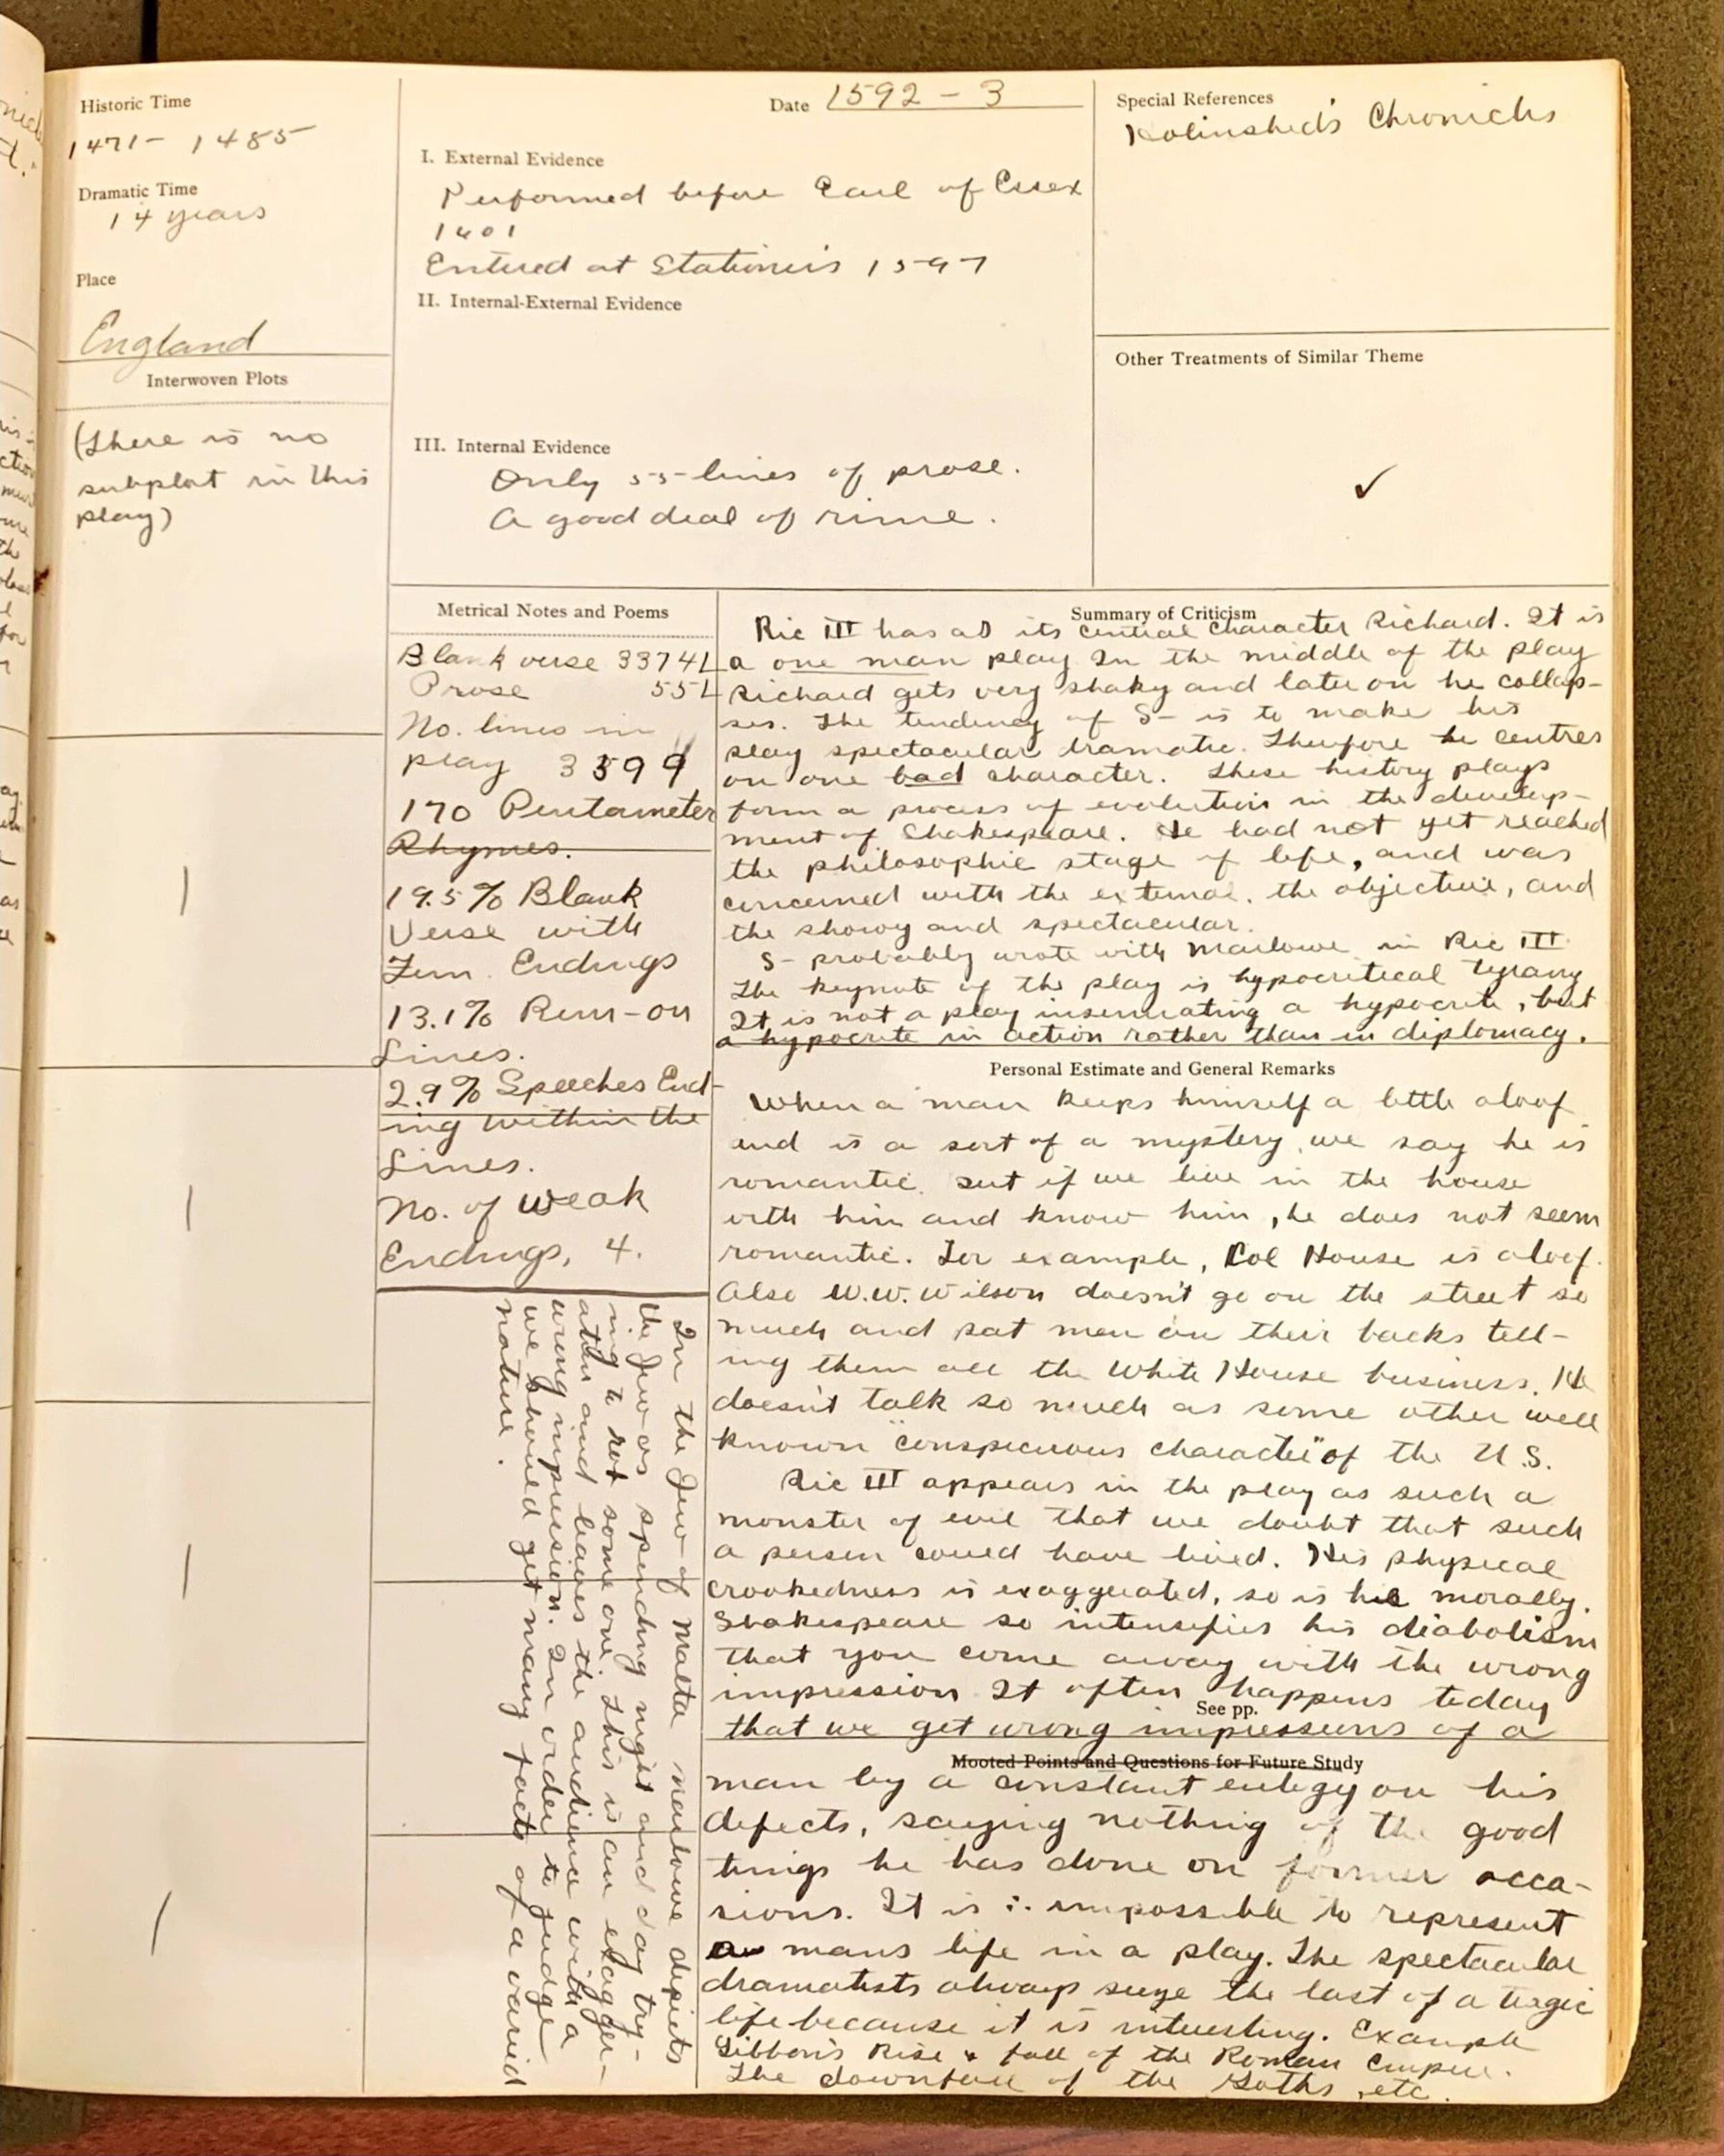 Historic Time
1471- 1485
Dramatic Time
14 years
Place
England
Interwoven Plots
(There is no
subplot in this
play)
Date 1592 - 3
I. External Evidence
Performed before Earl of Essex
1601
Entered at Stationer's 1597
II. Internal-External Evidence
III. Internal Evidence
Only 55 lines of prose.
A good deal of rime.
Special References
Holinshed's Chronicles
Other Treatments of Similar Theme
✓
Metrical Notes and Poems
Blank verse 3374L
Prose 55L
No. lines in
play 3599
170 Pentameter
Rhymes.
19.5% Blank
Verse with
Fem. Endings
13.1% Run-on
Lines.
2.9% Speeches End-
ing within the
Lines.
No. of weak
Endings, 4.
In the Jew of Malta Marlowe depicts
the Jew as spending night and day try-
ing to rot some one. This is an exagger-
ation and leaves the audience with a
wrong impression. In order to judge
we should get many facts of a varied
nature.
Summary of Criticism
Ric III has as its central character Richard. It is
a one man play. In the middle of the play
Richard gets very shaky and later on he collap-
ses. The tendency of S- is to make his
play spectacular dramatic. Therefore he centres
on one bad character. These history plays
form a process of evolution in the develop-
ment of Shakespeare. He had not yet reached
the philosophic stage of life, and was
concerned with the external, the objective, and
the showy and spectacular.
S- probably wrote with Marlowe in Ric III.
The keynote of the play is hypocritical tyrany
It is not a play insinuating a hypocrite, but
a hypocrite in action rather than in diplomacy.
Personal Estimate and General Remarks
When a man keeps himself a little aloof
and is a sort of a mystery, we say he is
romantic. But if we live in the house
with him and know him, he does not seem
romantic. For example, Col House is aloof.
Also W.W. Wilson doesn't go on the street so
much and pat men on their backs tell-
ing them all the White House business. He
doesn't talk so much as some other well
known "conspicuous character" of the U.S.
Ric III appears in the play as such a
monster of evil that we doubt that such
a person could have lived. His physical
crookedness is exaggerated, so is his morally.
Shakespeare so intensifies his diabolism
that you come away with the wrong
impression. It often happens today
See pp.
that we get wrong impressions of a
Mooted Points and Questions for Future Study
man by a constant eulogy on his
defects, saying nothing of the good
things he has done on former occa-
sions. It is ∴ impossible to represent
a mans life in a play. The spectacular
dramatists always seize the last of a tragic
life because it is interesting. Example
Gibbon's Rise & fall of the Roman Empire.
The downfall of the Goths, etc.